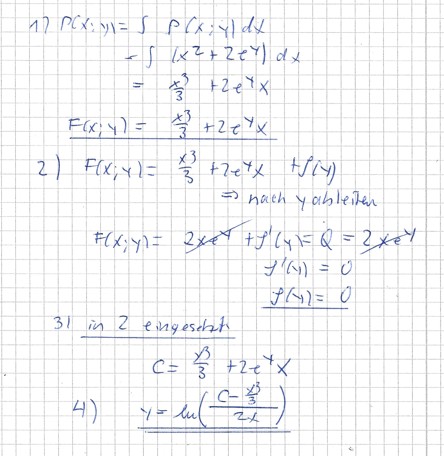 1) P(x;y) = ∫ P(x;y) dx
= ∫ (x² + 2e^y) dx
= x³/3 + 2e^y x
F(x;y) = x³/3 + 2e^y x
2) F(x;y) = x³/3 + 2e^y x + f(y)
⇒ nach y ableiten
F(x;y) = 2xe^y + f'(y) = Q = 2xe^y
f'(y) = 0
f(y) = 0
3) in 2 eingesetzt
C = x³/3 + 2e^y x
4) y = ln((C - x³/3)/2x)